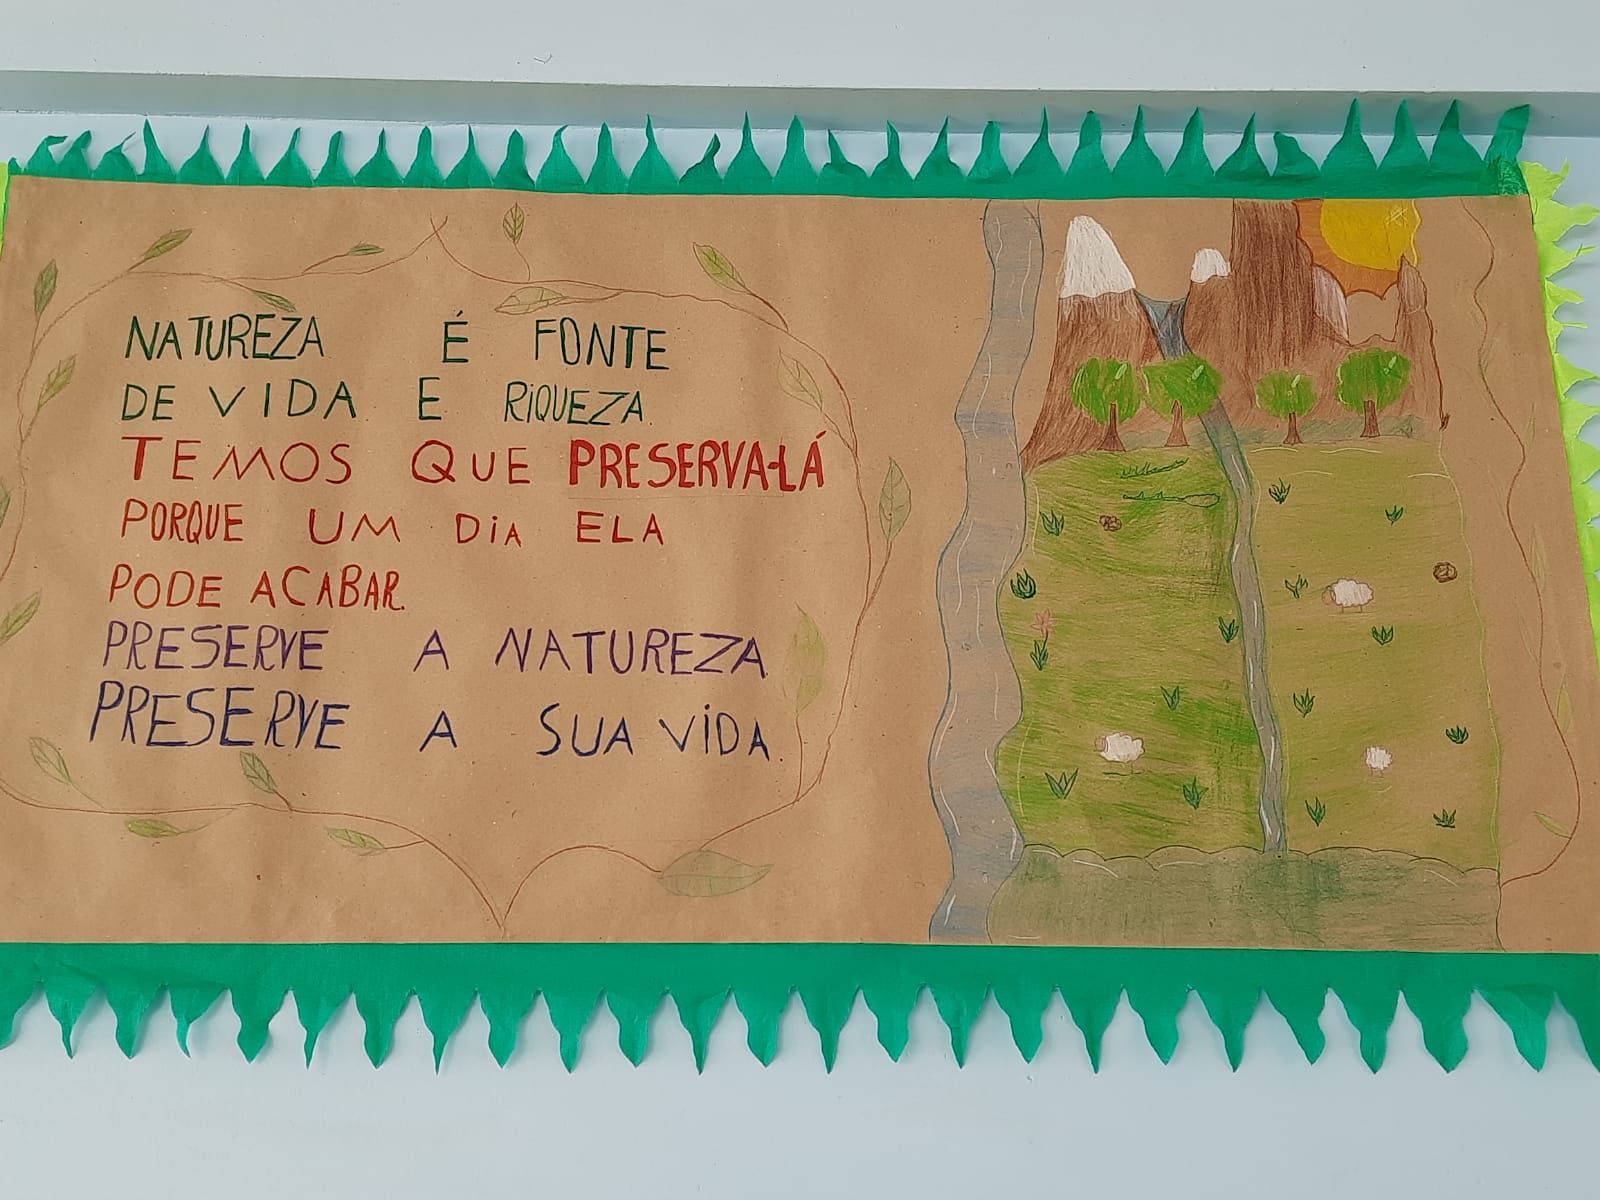 NATUREZA É FONTE
DE VIDA E RIQUEZA.
TEMOS QUE PRESERVA-LÁ
PORQUE UM DIA ELA
PODE ACABAR.
PRESERVE A NATUREZA
PRESERVE A SUA VIDA.